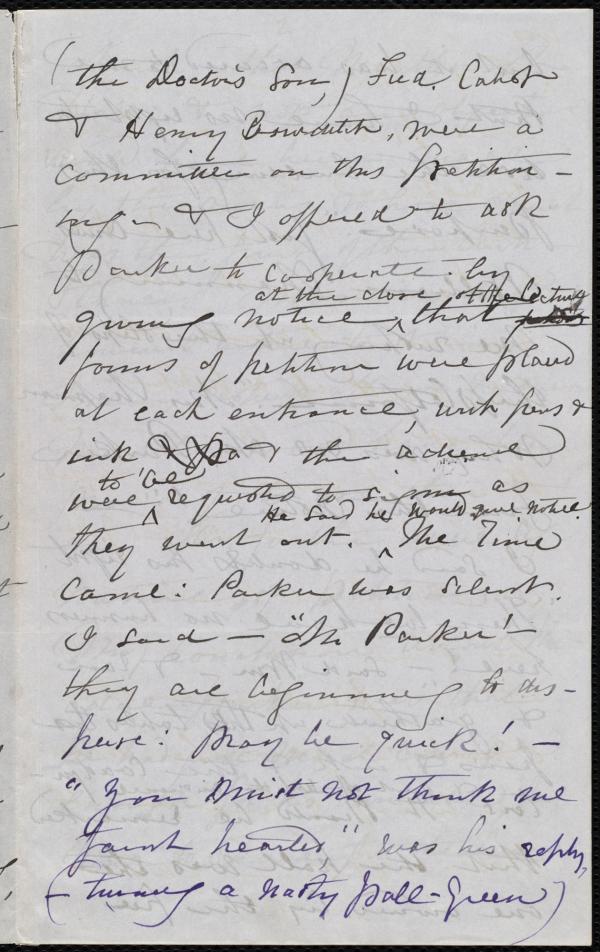 (the Doctor's Son,) Fred. Cabot
& Henry Bowditch, were a
committee on this petition-
ing - & I offered to ask
Parker to cooperate by
at the close of the lecture
giving notice, that
forms of petition were placed
at each entrance, with pens &
ink & the audience
to be
were requested to sign as
He said he would give notice.
they went out. The Time
Came: Parker was silent.
I said — "Mr Parker! —
they are beginning to dis-
perse: pray be quick! —
"You must not think me
faint hearted" was his reply,
(- turning a nasty pall-green)